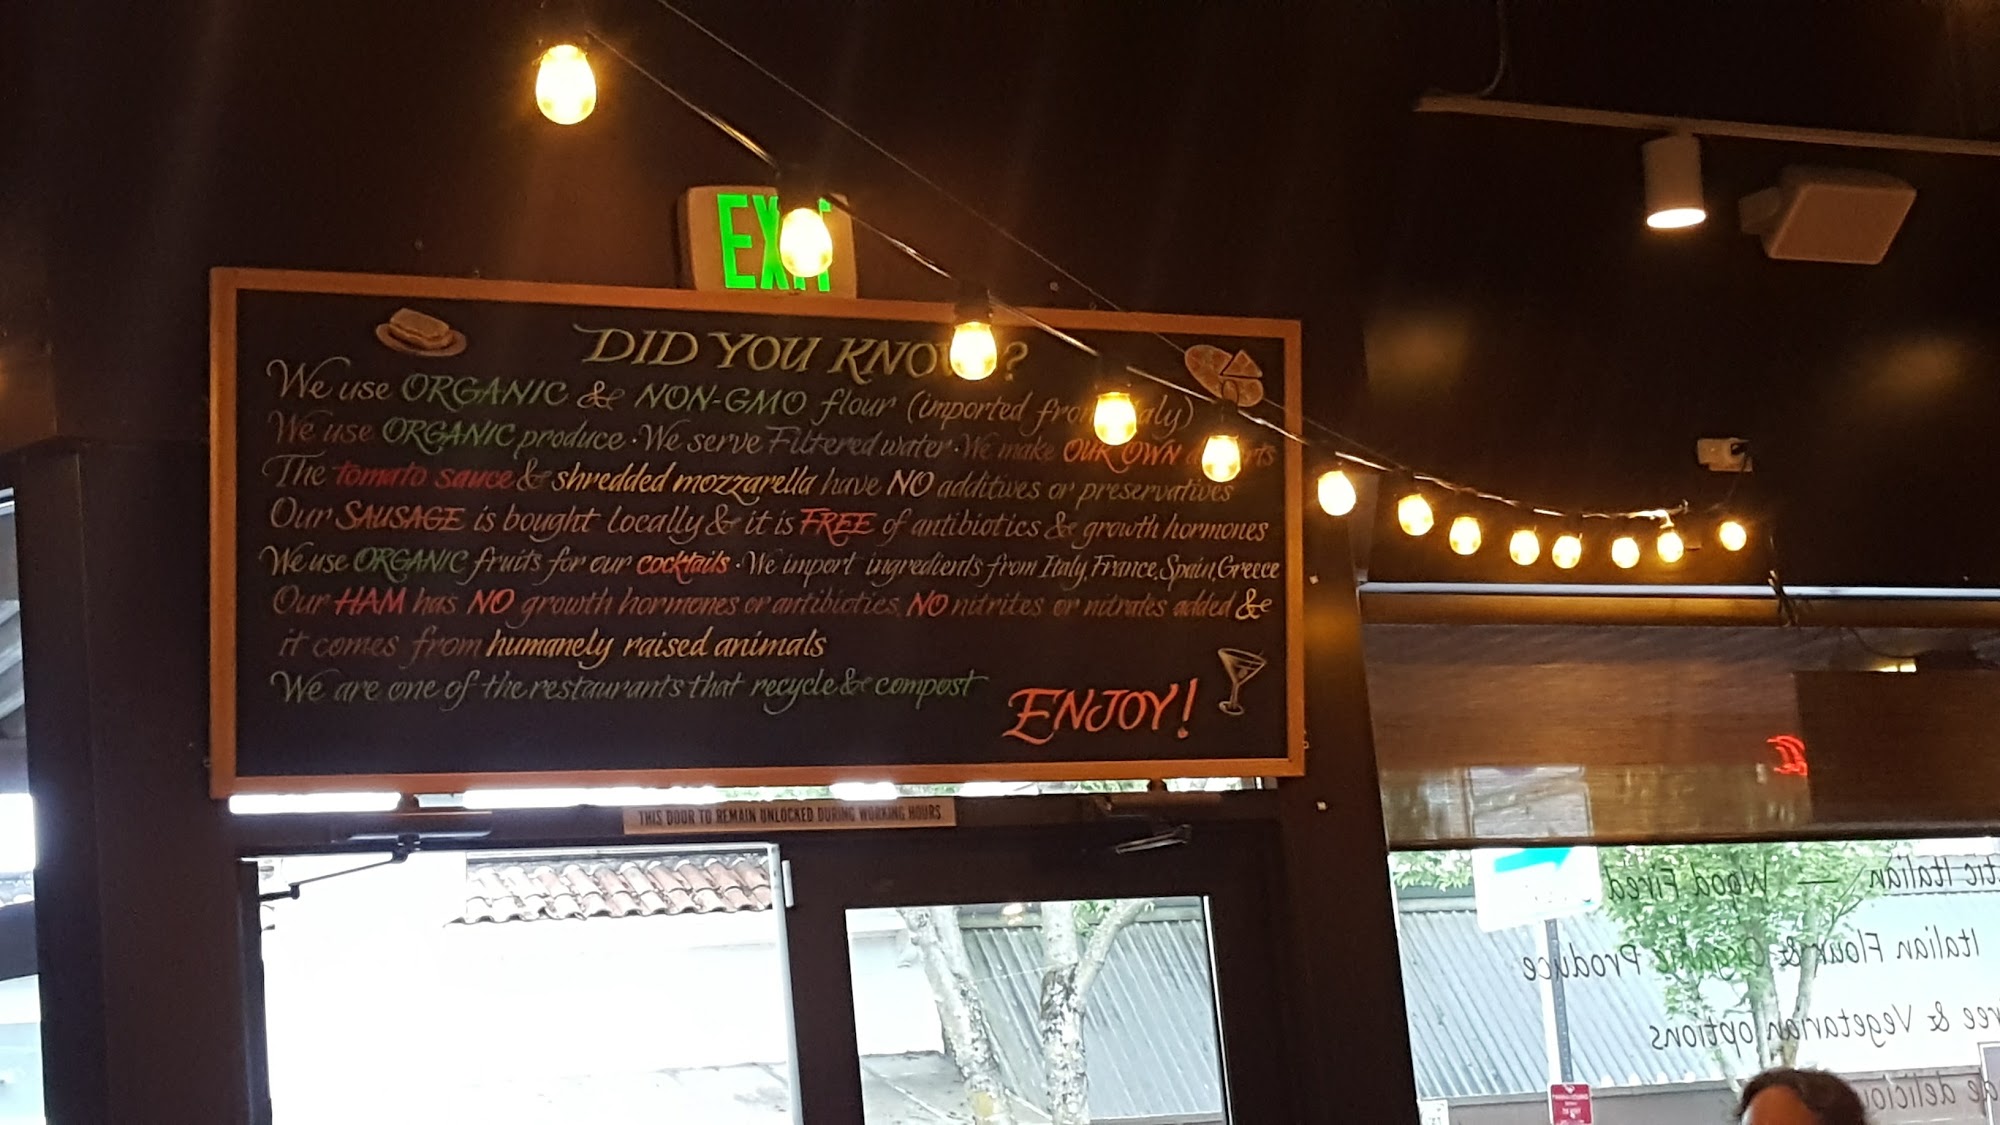 EXIT
DID YOU KNOW?
We use ORGANIC & NON-GMO flour (imported from Italy)
We use ORGANIC produce · We serve Filtered water · We make OUR OWN desserts
The tomato sauce & shredded mozzarella have NO additives or preservatives
Our SAUSAGE is bought locally & it is FREE of antibiotics & growth hormones
We use ORGANIC fruits for our cocktails · We import ingredients from Italy, France, Spain, Greece
Our HAM has NO growth hormones or antibiotics, NO nitrites or nitrates added &
it comes from humanely raised animals
We are one of the restaurants that recycle & compost
ENJOY!
THIS DOOR TO REMAIN UNLOCKED DURING WORKING HOURS
Italian — Wood Fired
Italian Flour & Organic Produce
& Vegetarian options